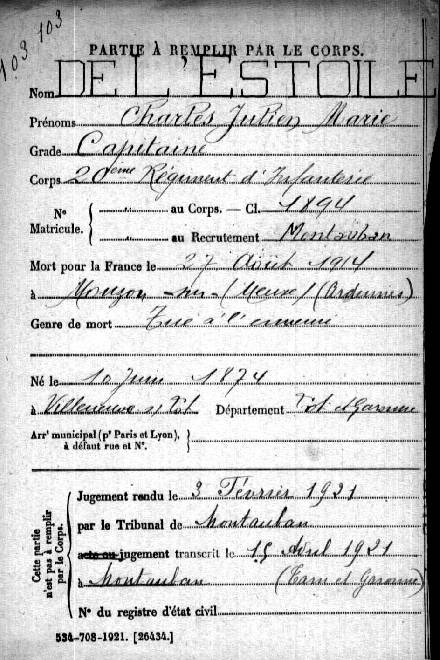 103 103
PARTIE À REMPLIR PAR LE CORPS.
Nom DE L'ESTOILE
Prénoms Charles Julien Marie
Grade Capitaine
Corps 20ème Régiment d'Infanterie
N° Matricule. { „ au Corps. — Cl. 1894
„ au Recrutement Montauban
Mort pour la France le 27 Août 1914
à Mouzon-sur-(Meuse) (Ardennes)
Genre de mort Tué à l'ennemi
Né le 10 Juin 1874
à Villeneuve s/ Lot Département Lot et Garonne
Arrt municipal (pr Paris et Lyon), à défaut rue et N°.
Cette partie n'est pas à remplir par le Corps.
Jugement rendu le 3 Février 1921
par le Tribunal de Montauban
acte ou jugement transcrit le 15 Avril 1921
à Montauban (Tarn et Garonne)
N° du registre d'état civil
534-708-1921. [26434.]